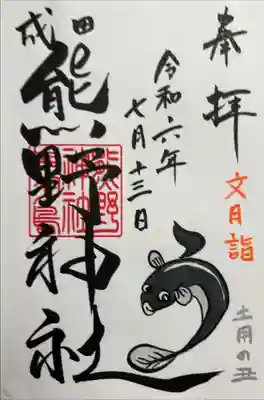 奉拝
文月詣
土用の丑
令和六年
七月十三日
成田
熊野神社
熊野
神社